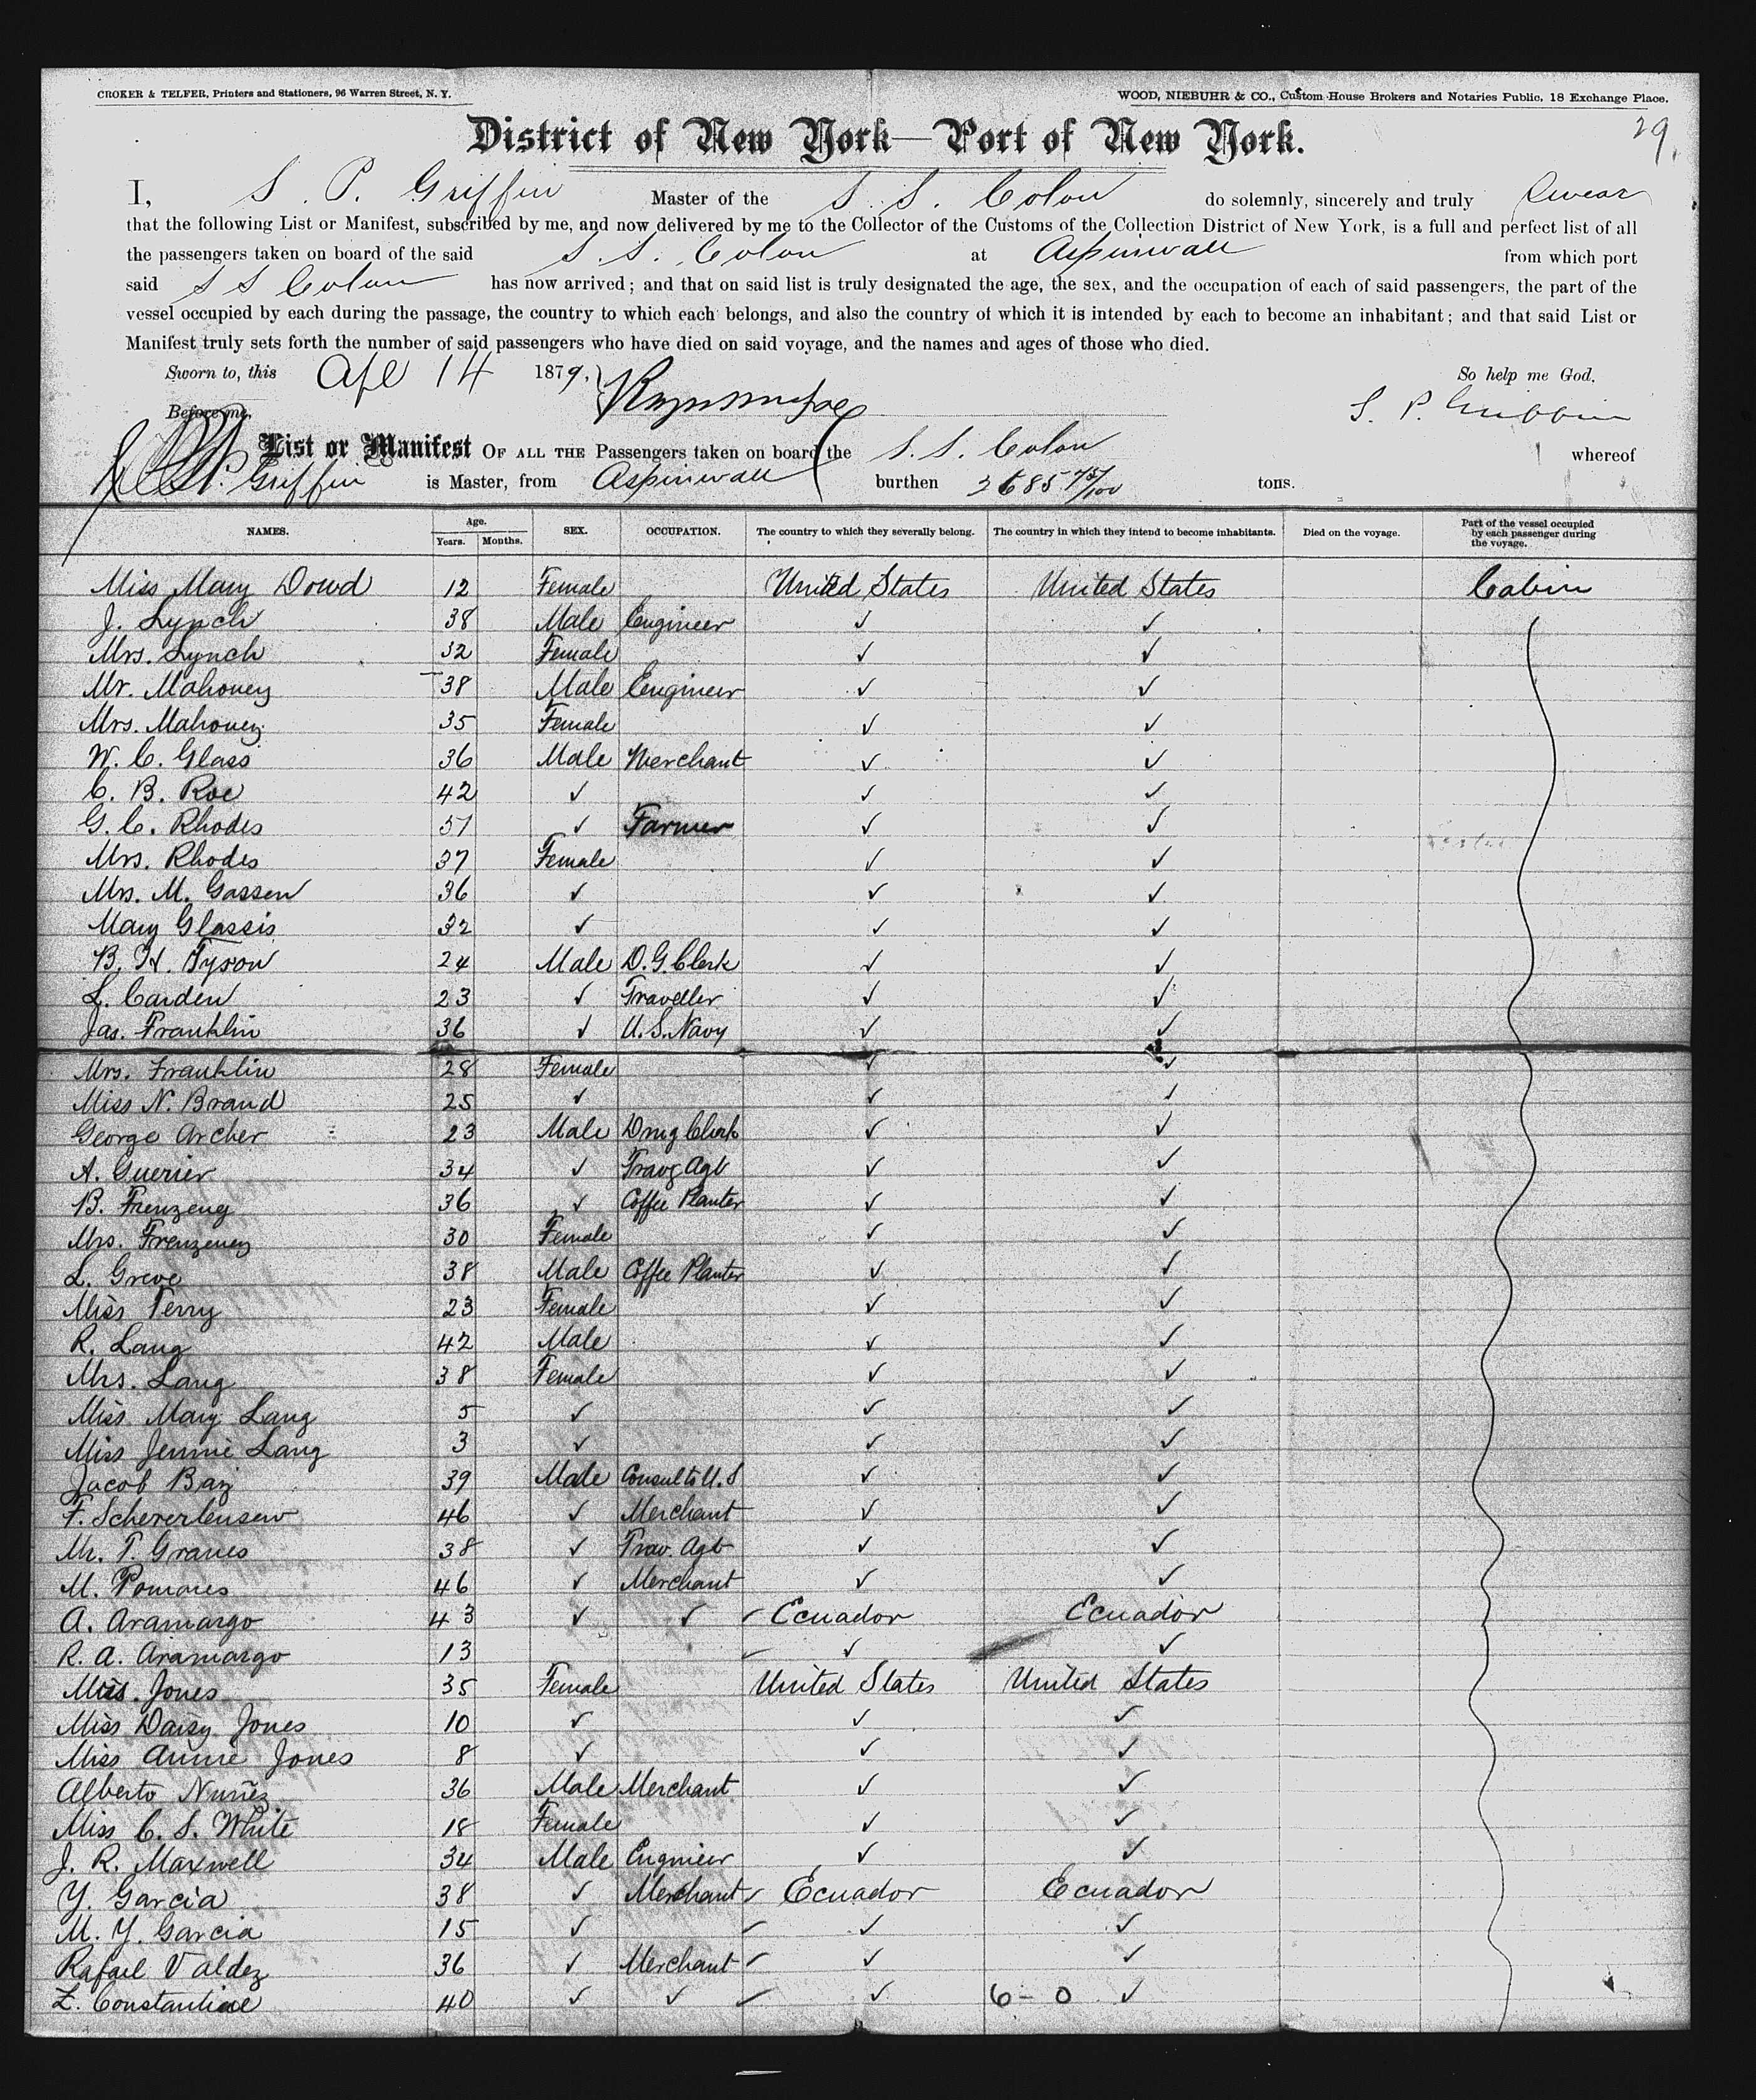 CROKER & TELFER, Printers and Stationers, 96 Warren Street, N. Y.
WOOD, NIEBUHR & CO., Custom House Brokers and Notaries Public, 18 Exchange Place.
29.
District of New York—Port of New York.
I, S. P. Griffin Master of the S. S. Colon do solemnly, sincerely and truly Swear
that the following List or Manifest, subscribed by me, and now delivered by me to the Collector of the Customs of the Collection District of New York, is a full and perfect list of all
the passengers taken on board of the said S. S. Colon at Aspinwall from which port
said S S Colon has now arrived; and that on said list is truly designated the age, the sex, and the occupation of each of said passengers, the part of the
vessel occupied by each during the passage, the country to which each belongs, and also the country of which it is intended by each to become an inhabitant; and that said List or
Manifest truly sets forth the number of said passengers who have died on said voyage, and the names and ages of those who died.
Sworn to, this Apl 14 1879. So help me God.
Before me, S. P. Griffin
List or Manifest OF ALL THE Passengers taken on board the S. S. Colon whereof
S. P. Griffin is Master, from Aspinwall burthen 2685 75/100 tons.
NAMES. Age. Years. Months. SEX. OCCUPATION. The country to which they severally belong. The country in which they intend to become inhabitants. Died on the voyage. Part of the vessel occupied by each passenger during the voyage.
Miss Mary Dowd 12 Female United States United States Cabin
J. Lynch 38 Male Engineer ✓ ✓
Mrs. Lynch 32 Female ✓ ✓
Mr. Mahoney 38 Male Engineer ✓ ✓
Mrs. Mahoney 35 Female ✓ ✓
W. C. Glass 36 Male Merchant ✓ ✓
C. B. Roe 42 ✓ ✓ ✓
G. C. Rhodes 51 ✓ Farmer ✓ ✓
Mrs. Rhodes 37 Female ✓ ✓
Mrs. M. Gassen 36 ✓ ✓ ✓
Mary Glassis 32 ✓ ✓ ✓
B. H. Tyson 24 Male D. G. Clerk ✓ ✓
L. Carden 23 ✓ Traveller ✓ ✓
Jas. Franklin 36 ✓ U. S. Navy ✓ ✓
Mrs. Franklin 28 Female ✓ ✓
Miss N. Brand 25 ✓ ✓ ✓
George Archer 23 Male Drug Clerk ✓ ✓
A. Guerier 34 ✓ Travg Agt ✓ ✓
B. Frenzeny 36 ✓ Coffee Planter ✓ ✓
Mrs. Frenzeney 30 Female ✓ ✓
L. Greve 38 Male Coffee Planter ✓ ✓
Miss Terry 23 Female ✓ ✓
R. Lang 42 Male ✓ ✓
Mrs. Lang 38 Female ✓ ✓
Miss Mary Lang 5 ✓ ✓ ✓
Miss Jennie Lang 3 ✓ ✓ ✓
Jacob Baiz 39 Male Consul to U. S ✓ ✓
F. 46 ✓ Merchant ✓ ✓
M. T. Graves 38 ✓ Trav. Agt ✓ ✓
M. Pomares 46 ✓ Merchant ✓ ✓
A. Aramargo 43 ✓ ✓ ✓ Ecuador Ecuador
R. A. Aramargo 13 ✓ ✓ ✓
Mrs. Jones 35 Female United States United States
Miss Daisy Jones 10 ✓ ✓ ✓
Miss Annie Jones 8 ✓ ✓ ✓
Alberto Nuñez 36 Male Merchant ✓ ✓
Miss C. S. White 18 Female ✓ ✓
J. R. Maxwell 34 Male Engineer ✓ ✓
Y. Garcia 38 ✓ Merchant ✓ Ecuador Ecuador
M. Y. Garcia 15 ✓ ✓ ✓ ✓
Rafael Valdez 36 ✓ Merchant ✓ ✓ ✓
Z. Constantine 40 ✓ ✓ ✓ ✓ 6 - 0 ✓